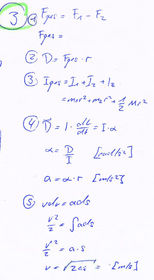 3
① Fges = F₁ - F₂
Fges =
② D = Fges · r
③ Iges = I₁ + I₂ + I₂
= m₁r² + m₂r² + ½ Mr²
④ D = I · dω/dt = I · α
α = D/I [rad/s²]
a = α · r [m/s²]
⑤ vdv = ads
v²/2 = ∫ads
v²/2 = a · s
v = √2as = [m/s]